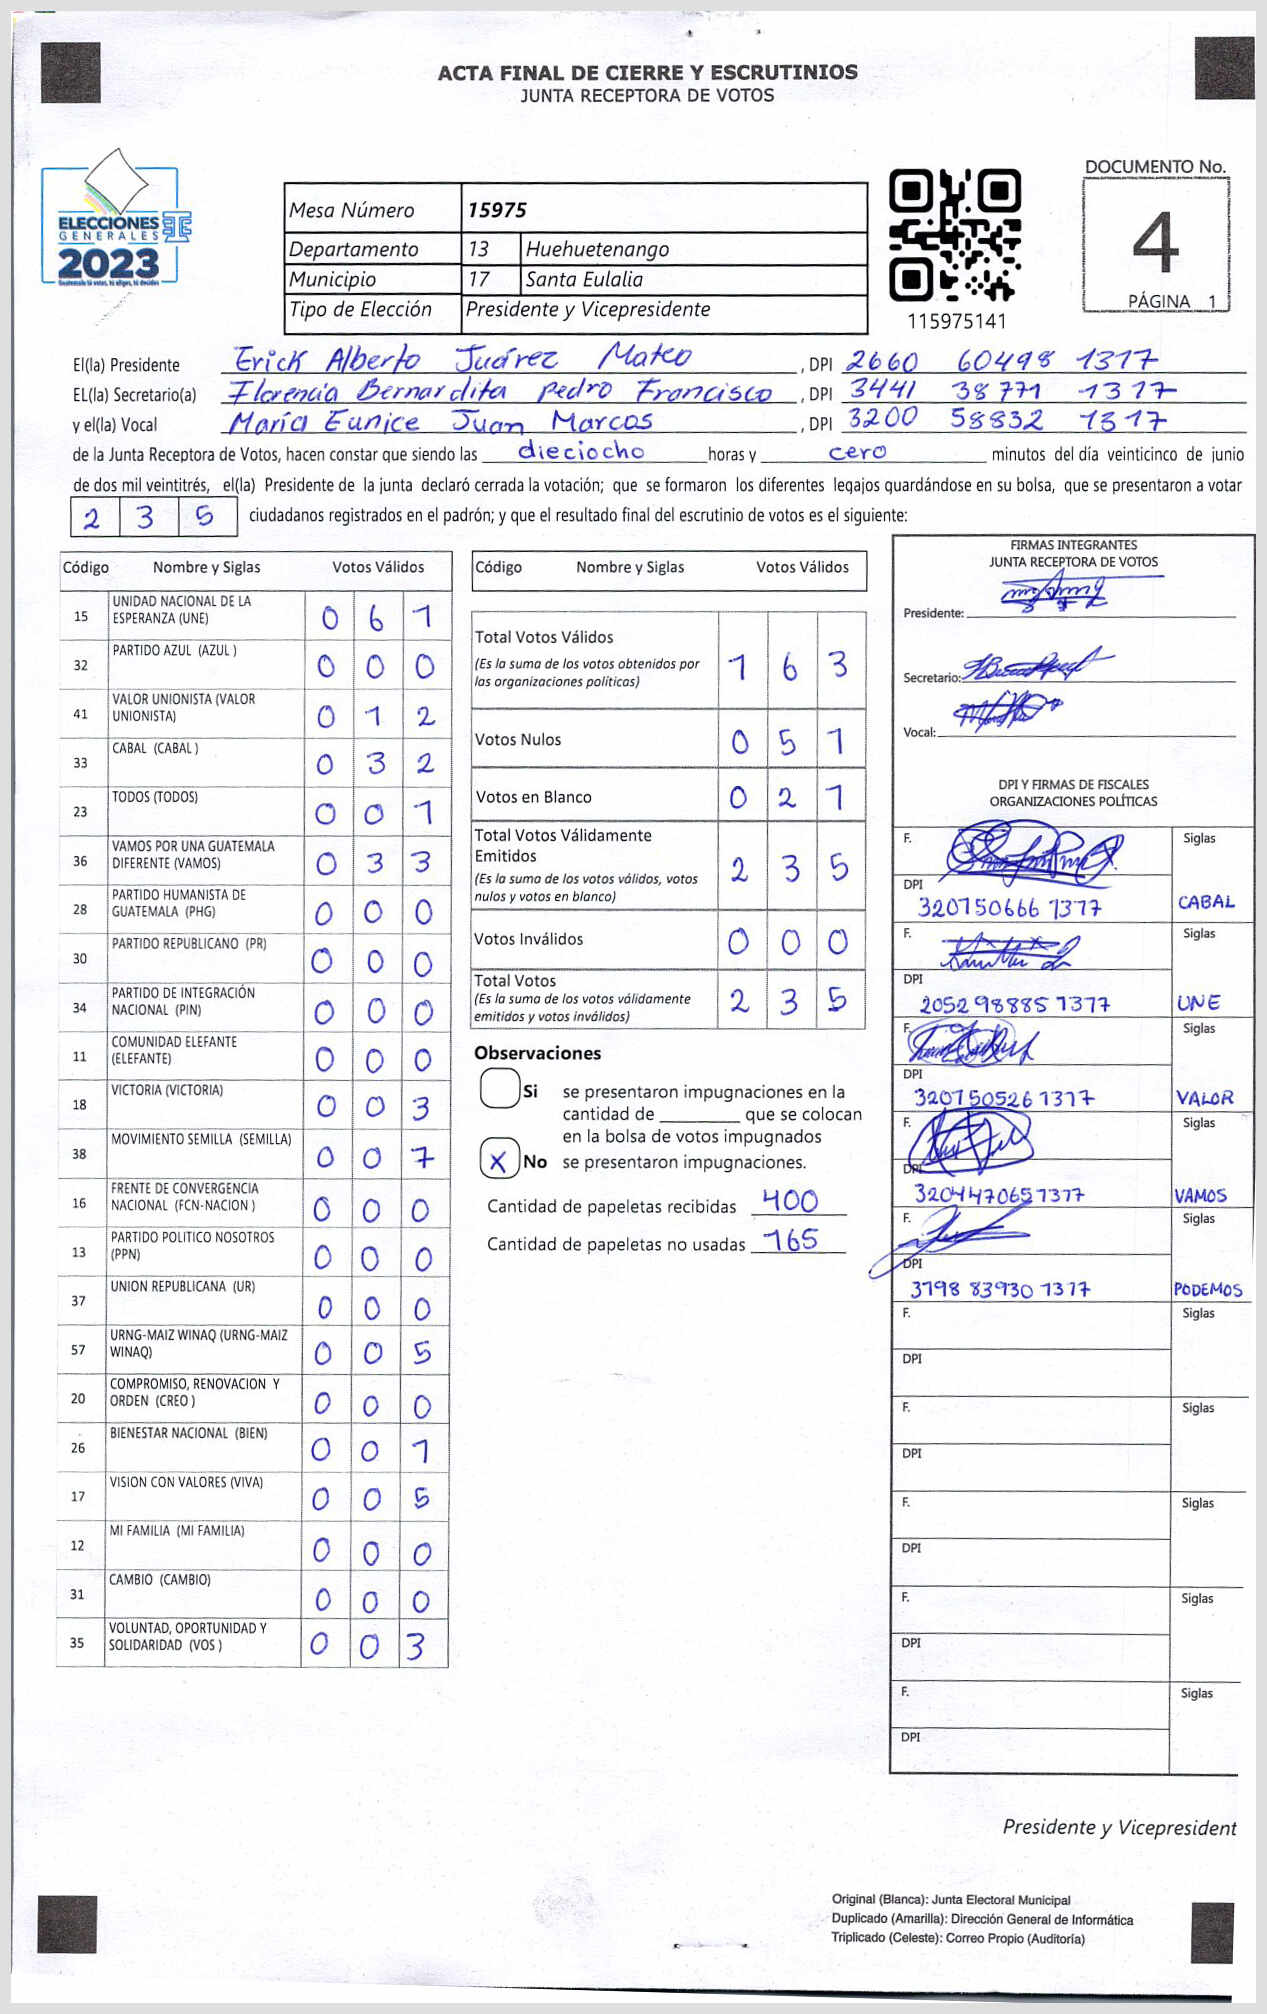 ACTA FINAL DE CIERRE Y ESCRUTINIOS
JUNTA RECEPTORA DE VOTOS
ELECCIONES
GENERALES
2023
Guatemala tú votas, tú eliges, tú decides
TSE
Mesa Número 15975
Departamento 13 Huehuetenango
Municipio 17 Santa Eulalia
Tipo de Elección Presidente y Vicepresidente
115975141
DOCUMENTO No.
4
PÁGINA 1
El(la) Presidente Erick Alberto Juárez Mateo , DPI 2660 60498 1317
EL(la) Secretario(a) Florencia Bernardita Pedro Francisco , DPI 3441 38771 1317
y el(la) Vocal María Eunice Juan Marcos , DPI 3200 58832 1317
de la Junta Receptora de Votos, hacen constar que siendo las dieciocho horas y cero minutos del día veinticinco de junio
de dos mil veintitrés, el(la) Presidente de la junta declaró cerrada la votación; que se formaron los diferentes legajos guardándose en su bolsa, que se presentaron a votar
2 3 5 ciudadanos registrados en el padrón; y que el resultado final del escrutinio de votos es el siguiente:
Código Nombre y Siglas Votos Válidos
15 UNIDAD NACIONAL DE LA
ESPERANZA (UNE) 0 6 1
32 PARTIDO AZUL (AZUL ) 0 0 0
41 VALOR UNIONISTA (VALOR
UNIONISTA) 0 1 2
33 CABAL (CABAL ) 0 3 2
23 TODOS (TODOS) 0 0 1
36 VAMOS POR UNA GUATEMALA
DIFERENTE (VAMOS) 0 3 3
28 PARTIDO HUMANISTA DE
GUATEMALA (PHG) 0 0 0
30 PARTIDO REPUBLICANO (PR) 0 0 0
34 PARTIDO DE INTEGRACIÓN
NACIONAL (PIN) 0 0 0
11 COMUNIDAD ELEFANTE
(ELEFANTE) 0 0 0
18 VICTORIA (VICTORIA) 0 0 3
38 MOVIMIENTO SEMILLA (SEMILLA) 0 0 7
16 FRENTE DE CONVERGENCIA
NACIONAL (FCN-NACION ) 0 0 0
13 PARTIDO POLITICO NOSOTROS
(PPN) 0 0 0
37 UNION REPUBLICANA (UR) 0 0 0
57 URNG-MAIZ WINAQ (URNG-MAIZ
WINAQ) 0 0 5
20 COMPROMISO, RENOVACION Y
ORDEN (CREO ) 0 0 0
26 BIENESTAR NACIONAL (BIEN) 0 0 1
17 VISION CON VALORES (VIVA) 0 0 5
12 MI FAMILIA (MI FAMILIA) 0 0 0
31 CAMBIO (CAMBIO) 0 0 0
35 VOLUNTAD, OPORTUNIDAD Y
SOLIDARIDAD (VOS ) 0 0 3
Código Nombre y Siglas Votos Válidos
Total Votos Válidos
(Es la suma de los votos obtenidos por
las organizaciones políticas) 1 6 3
Votos Nulos 0 5 1
Votos en Blanco 0 2 1
Total Votos Válidamente
Emitidos
(Es la suma de los votos válidos, votos
nulos y votos en blanco) 2 3 5
Votos Inválidos 0 0 0
Total Votos
(Es la suma de los votos válidamente
emitidos y votos inválidos) 2 3 5
Observaciones
Si se presentaron impugnaciones en la
cantidad de ________ que se colocan
en la bolsa de votos impugnados
X No se presentaron impugnaciones.
Cantidad de papeletas recibidas 400
Cantidad de papeletas no usadas 165
FIRMAS INTEGRANTES
JUNTA RECEPTORA DE VOTOS
Presidente:
Secretario:
Vocal:
DPI Y FIRMAS DE FISCALES
ORGANIZACIONES POLÍTICAS
F. Siglas
DPI
320150666 1317 CABAL
F. Siglas
DPI
2052 98885 1317 UNE
F. Siglas
DPI
320150526 1317 VALOR
F. Siglas
DPI
3204470651317 VAMOS
F. Siglas
DPI
3198 83930 1317 PODEMOS
F. Siglas
DPI
F. Siglas
DPI
F. Siglas
DPI
F. Siglas
DPI
F. Siglas
DPI
Presidente y Vicepresident
Original (Blanca): Junta Electoral Municipal
Duplicado (Amarilla): Dirección General de Informática
Triplicado (Celeste): Correo Propio (Auditoría)